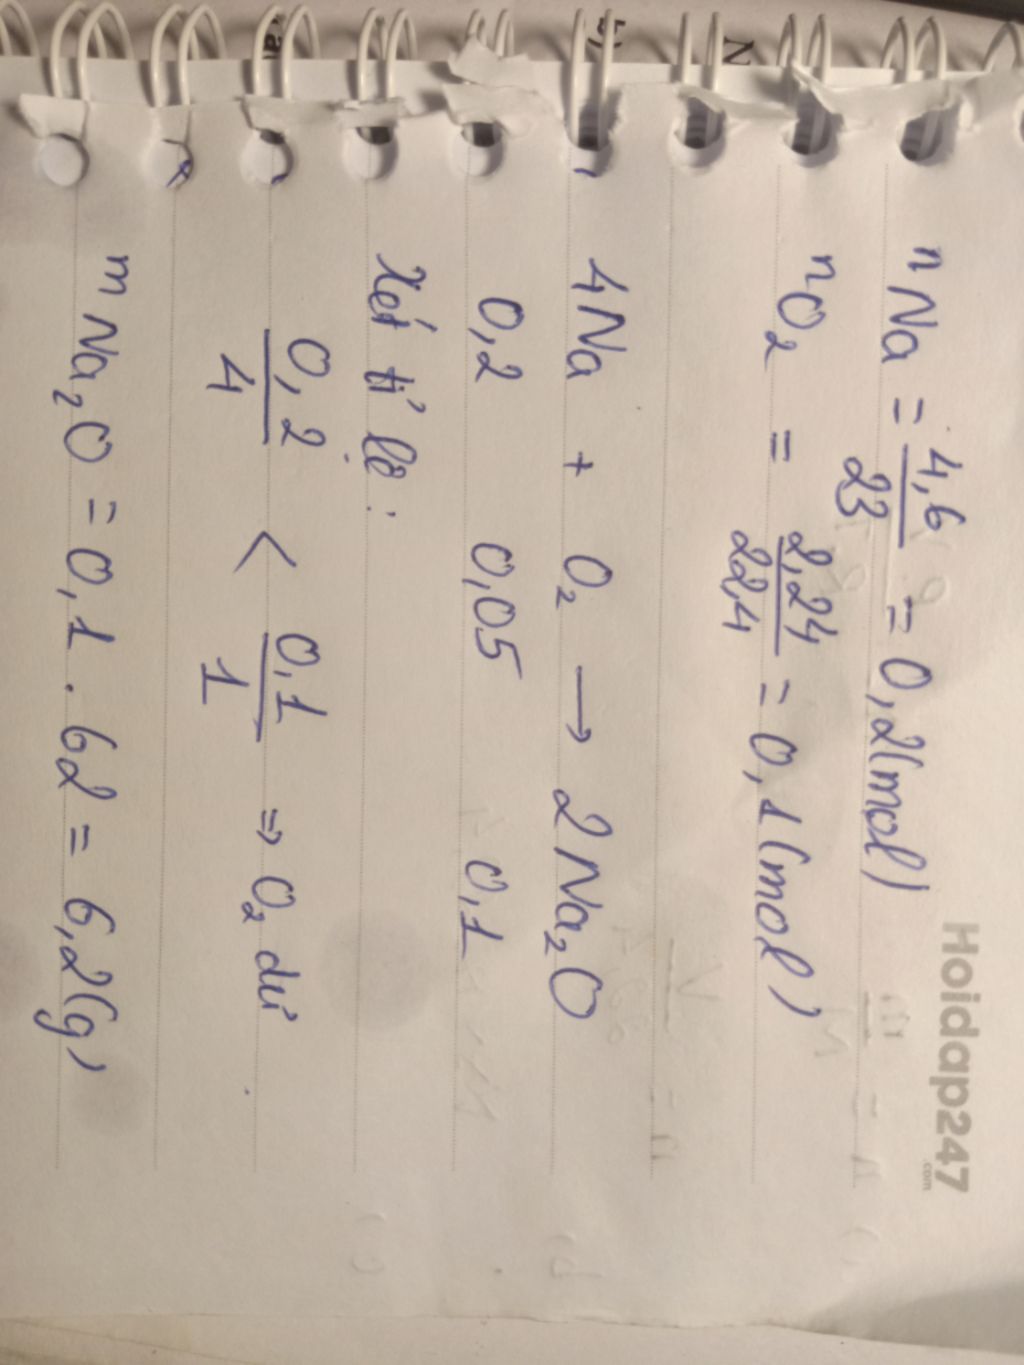 Hoidap247
.com
nNa = 4,6/23 = 0,2(mol)
nO2 = 2,24/22,4 = 0,1(mol)
4Na + O2 → 2Na2O
0,2 0,05 0,1
Xét tỉ lệ:
0,2/4 < 0,1/1 ⇒ O2 dư
mNa2O = 0,1 . 62 = 6,2(g)